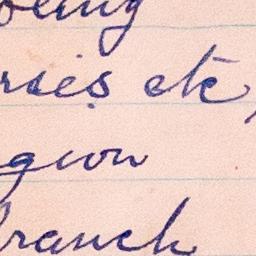 being
rsies etc,
gion
branch